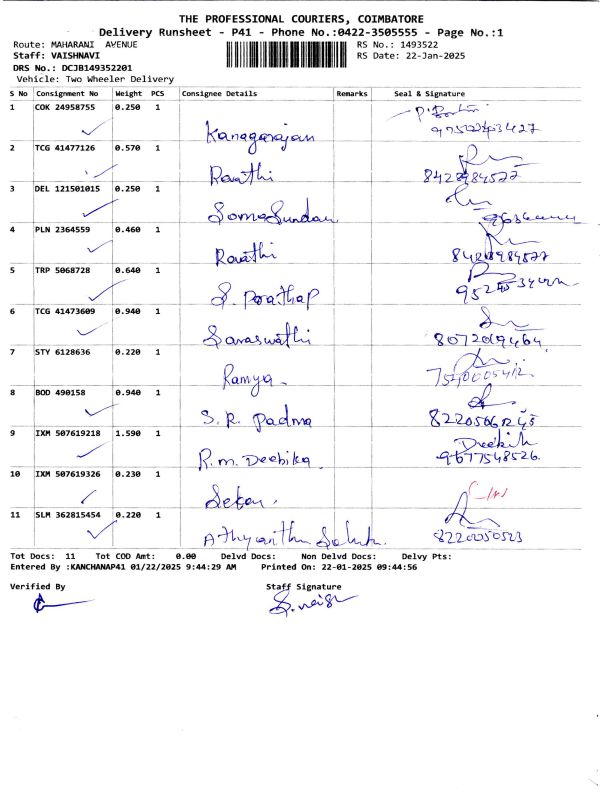 THE PROFESSIONAL COURIERS, COIMBATORE
Delivery Runsheet - P41 - Phone No.:0422-3505555 - Page No.:1
Route: MAHARANI AVENUE RS No.: 1493522
Staff: VAISHNAVI RS Date: 22-Jan-2025
DRS No.: DCJB149352201
Vehicle: Two Wheeler Delivery
S No Consignment No Weight PCS Consignee Details Remarks Seal & Signature
1 COK 24958755 0.250 1
Kanagarajan
2 TCG 41477126 0.570 1
Ravathi 8428984577
3 DEL 121501015 0.250 1
Somasundar
4 PLN 2364559 0.460 1
Ravathi 8428984577
5 TRP 5068728 0.640 1
S. Prathap
6 TCG 41473609 0.940 1
Saraswathi 8072069464
7 STY 6128636 0.220 1
Ramya 7540005412
8 BOD 490158 0.940 1
S. R. Padma
9 IXM 507619218 1.590 1
R.m. Deebika 9677548526
10 IXM 507619326 0.230 1
Sekar
11 SLM 362815454 0.220 1
8220050523
Tot Docs: 11 Tot COD Amt: 0.00 Delvd Docs: Non Delvd Docs: Delvy Pts:
Entered By :KANCHANAP41 01/22/2025 9:44:29 AM Printed On: 22-01-2025 09:44:56
Verified By Staff Signature